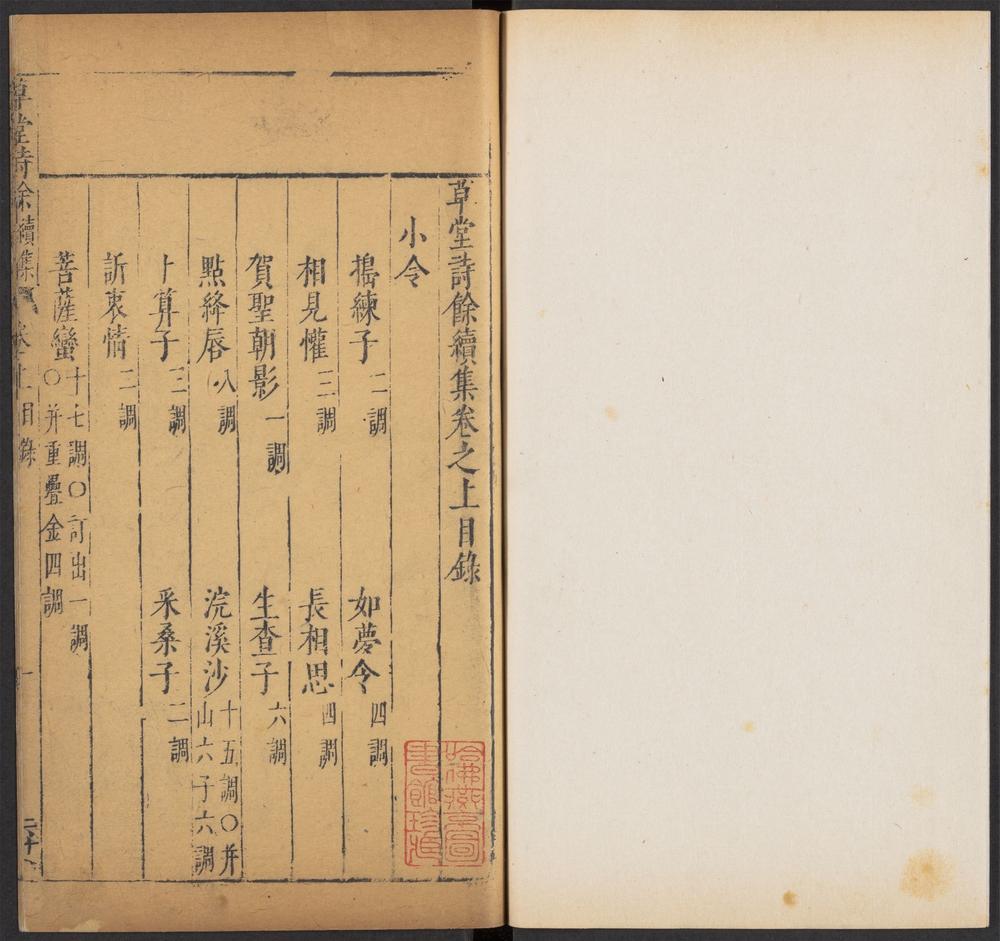 草堂詩餘續集卷之上目錄
小令
搗練子 二調 如夢令 四調
相見懽 三調 長相思 四調
賀聖朝影 一調 生查子 六調
點絳唇 八調 浣溪沙 十五調○并山六子六調
卜算子 三調 采桑子 二調
訢衷情 二調
菩薩蠻 十七調○訂出一調○并重疊金四調
草堂詩餘續集 卷上目錄 一
哈佛燕京圖書館珍藏